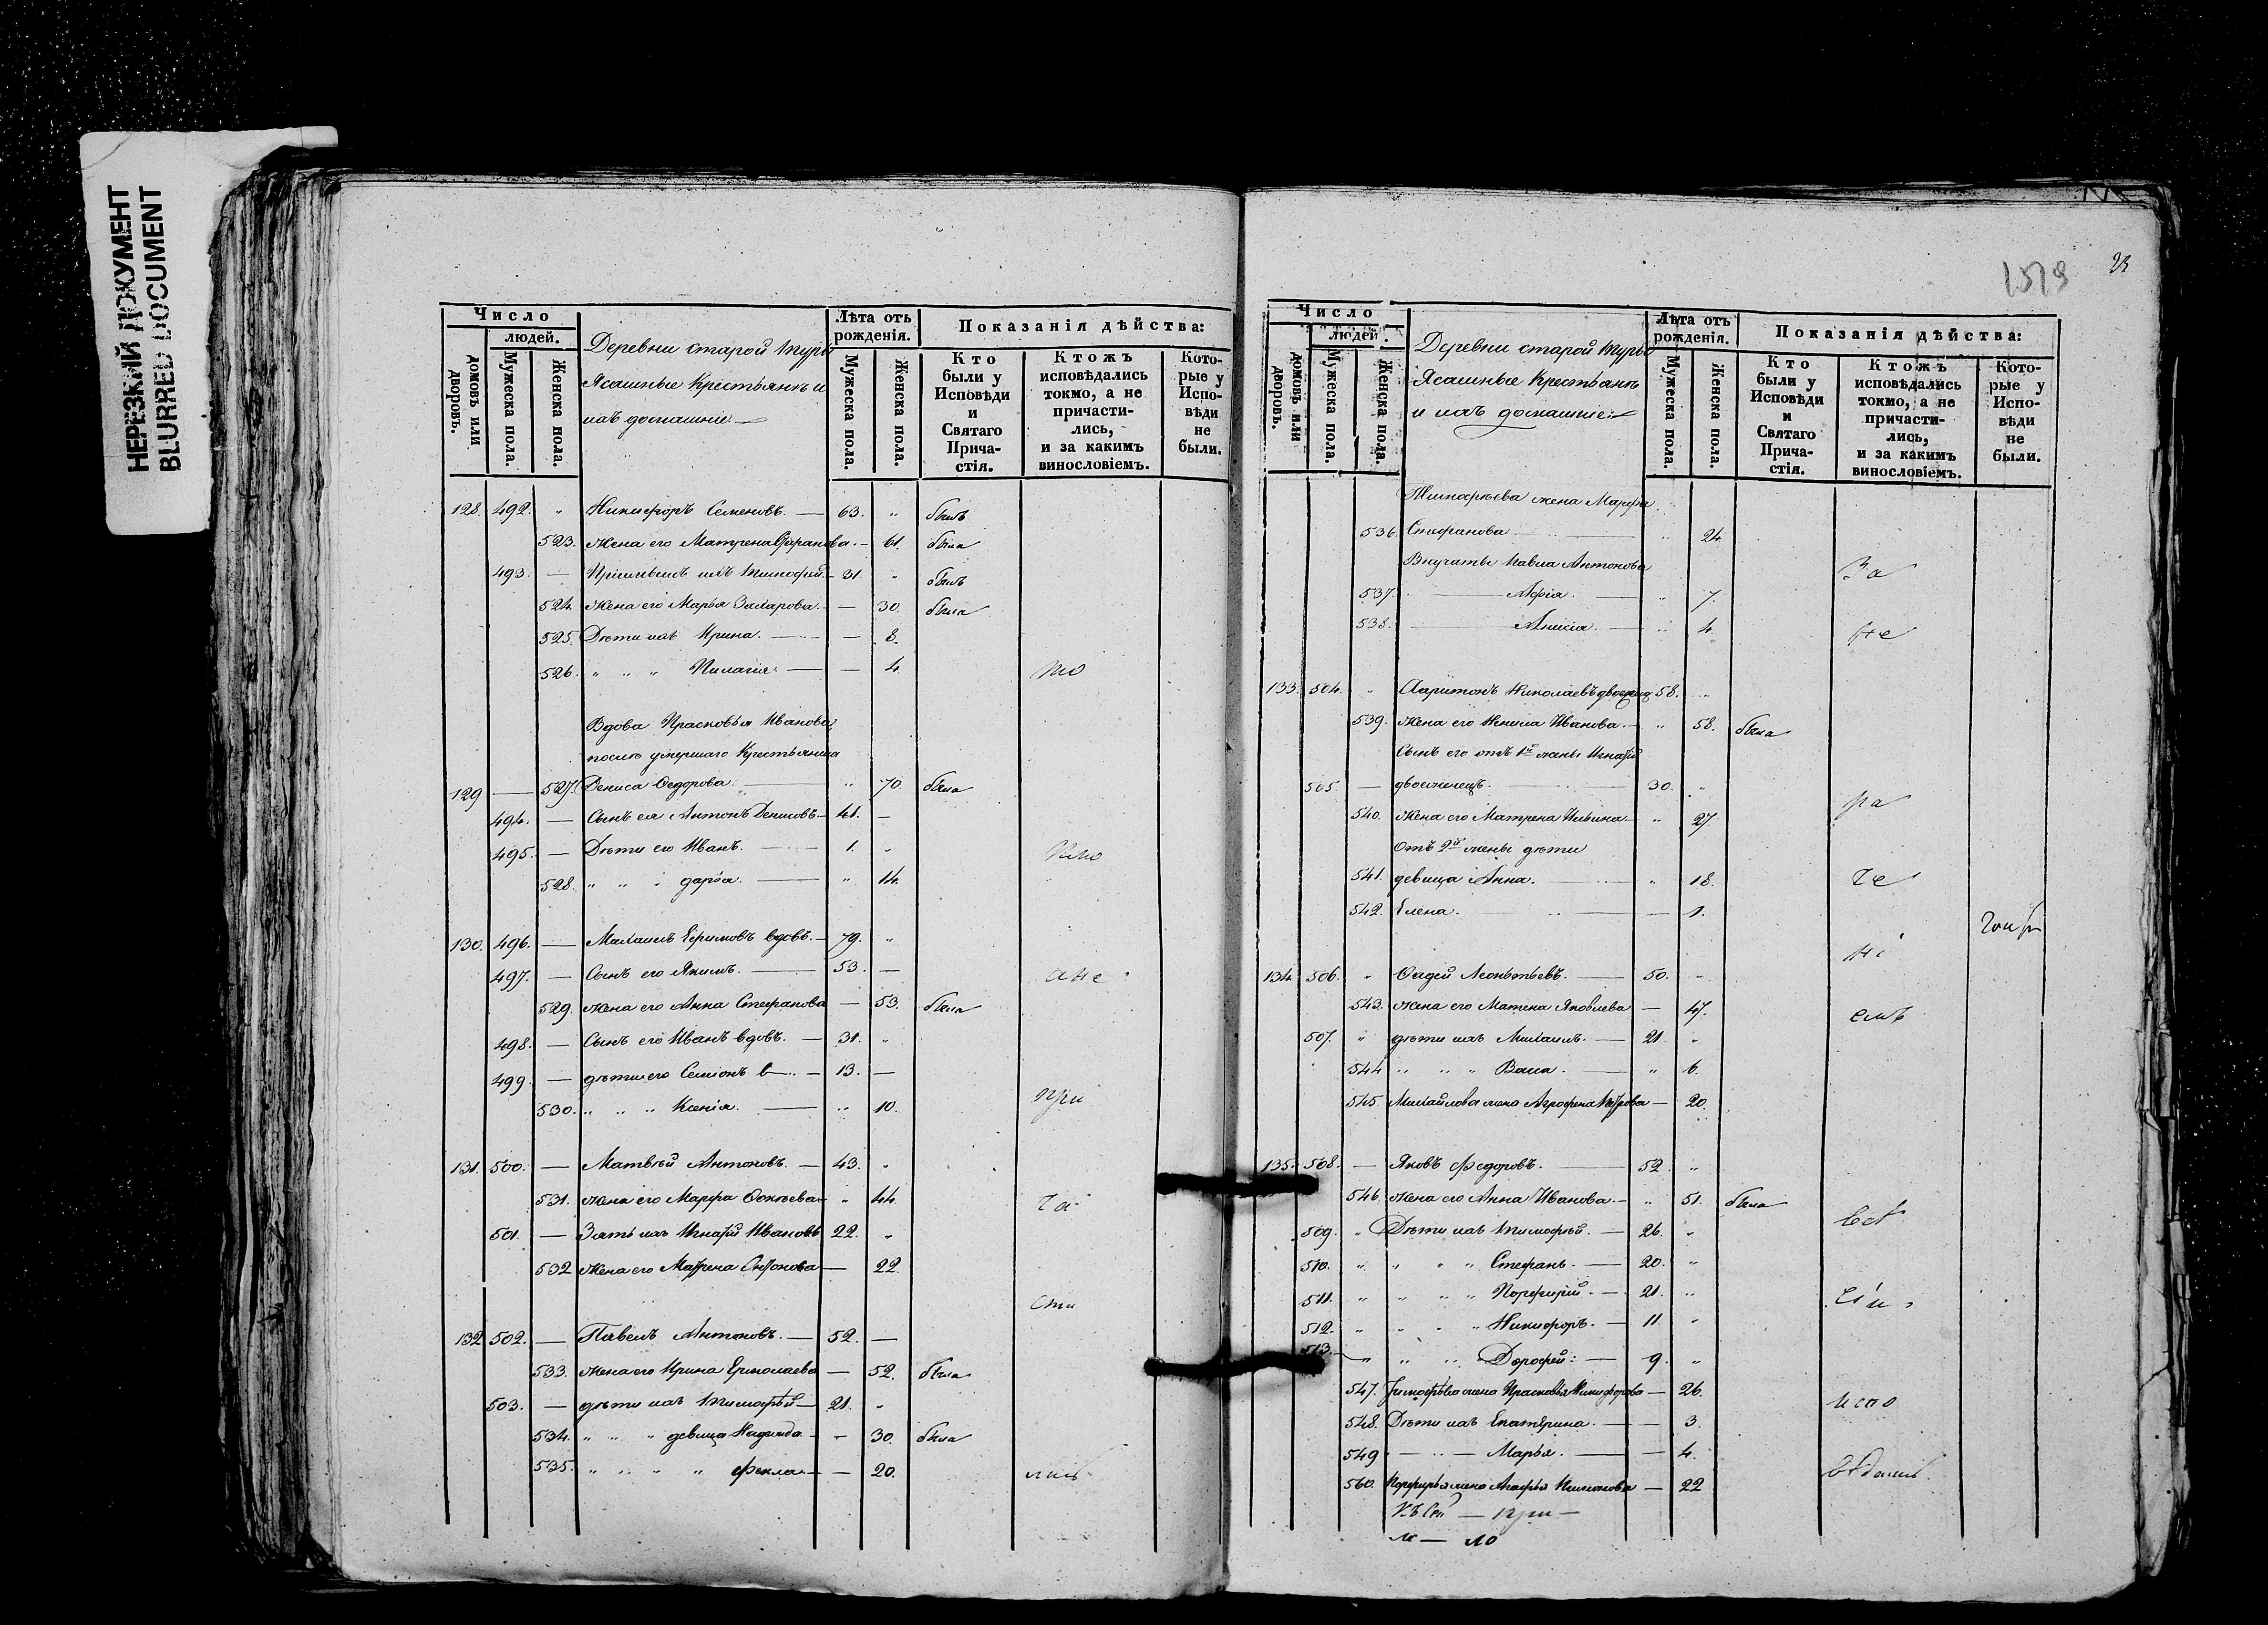 НЕРЕЗКИЙ ДОКУМЕНТ
BLURRED DOCUMENT
Число
людей.
домовъ или дворовъ.
Мужеска пола.
Женска пола.
Деревни старой
Ясашные Крестьянъ и
ихъ домашние
Лѣта отъ рожденія.
Мужеска пола.
Женска пола.
Показанія дѣйства:
Кто были у Исповѣди и Святаго Прича- стія.
Ктожъ исповѣдались токмо, а не причасти- лись, и за какимъ винословіемъ.
Кото- рые у Испо- вѣди не были.
128. 492. " Никифоръ Семеновъ. — 63. " былъ
523. Жена его Матрена — 61. была
493. — Тимофей — 31. " былъ
524. Жена его Марья Захарова. — — 30. была
525. Дѣти ихъ Ирина. — — 8.
526. " " " Пилагія. — — 4.
Вдова Прасковья Иванова,
после умершаго Крестьянина
129 — 527. Дениса Федорова. — " 70. была
494. — Сынъ ея Антонъ Денисовъ — 41. —
495. — Дѣти его Иванъ. — 1. "
528. " " " дарья. — " 14.
130. 496. — Михаилъ Ефимовъ вдовъ. — 79. "
497. — Сынъ его Якимъ. — 53. —
а не
529. жена его Анна Стефанова — 53. была
498. — Сынъ его Иванъ вдовъ. — 31. "
499. — дѣти его Семіонъ — 13. —
530. " " " Ксенія. — " 10.
при
131. 500. — Матвѣй Антоновъ. — 43. "
531. жена его Марфа — " 44.
ча
501. — Зять ихъ Игнатій Ивановъ 22. "
532 жена его Матрена Антонова — 22.
сти
132 502. — Павелъ Антоновъ. — 52. —
533. жена его Ирина Ермолаева — 52. была
503. — дѣти ихъ Тимофѣй — 21. "
534. " " " девица Надежда — — 30. была
535. " " " " Фекла — — 20.
лись
1519
Число
людей.
домовъ или дворовъ.
Мужеска пола.
Женска пола.
Деревни старой
Ясашные Крестьянъ
и ихъ домашніе
Лѣта отъ рожденія.
Мужеска пола.
Женска пола.
Показанія дѣйства:
Кто были у Исповѣди и Святаго Прича- стія.
Ктожъ исповѣдались токмо, а не причасти- лись, и за какимъ винословіемъ.
Кото- рые у Испо- вѣди не были.
Тимофѣева жена Марфа
536. Стефанова — " 24.
Внучаты Павла Антонова
За
537. " — — " 7.
538. — Анисія. — " 4.
не
133. 504. " Харитонъ Николаевъ двоеженецъ 58. "
539. жена его Ненила Иванова. — " 58. была
Сынъ его отъ 1й жены Игнатій
505. — двоеженецъ. — 30. "
ра
540. жена его Матрена Ильина — " 27.
Отъ 2й жены дѣти
541. девица Анна. — " 18.
че
542. Елена. — — 1.
ні
134. 506. " Леонтьевъ. — 50. "
543. жена его Матена Яковлева — 47.
емъ
507. " дѣти ихъ Михаилъ. — 21. "
544 " " " Васа. — " 6.
545. Михайлова жена Агрофена Петрова — 20.
135. 508. — Яковъ Федоровъ. — 52. "
546. жена его Анна Иванова. — " 51. была
509. " Дѣти ихъ Тимофѣй. — 26. "
510. " " " " Стефанъ. — 20. "
511. " " " " Порфирій. — 21. "
512. " " " " Никифоръ. — 11. "
513. — " " " Дорофей: — 9. "
547. Тимофѣева жена Прасковья Никифорова — 26.
испо
548. Дѣти ихъ Екатерина. — — 3.
549 — " — Марья. — — 4.
вѣдались.
560. Порфирья жена Агафья — 22